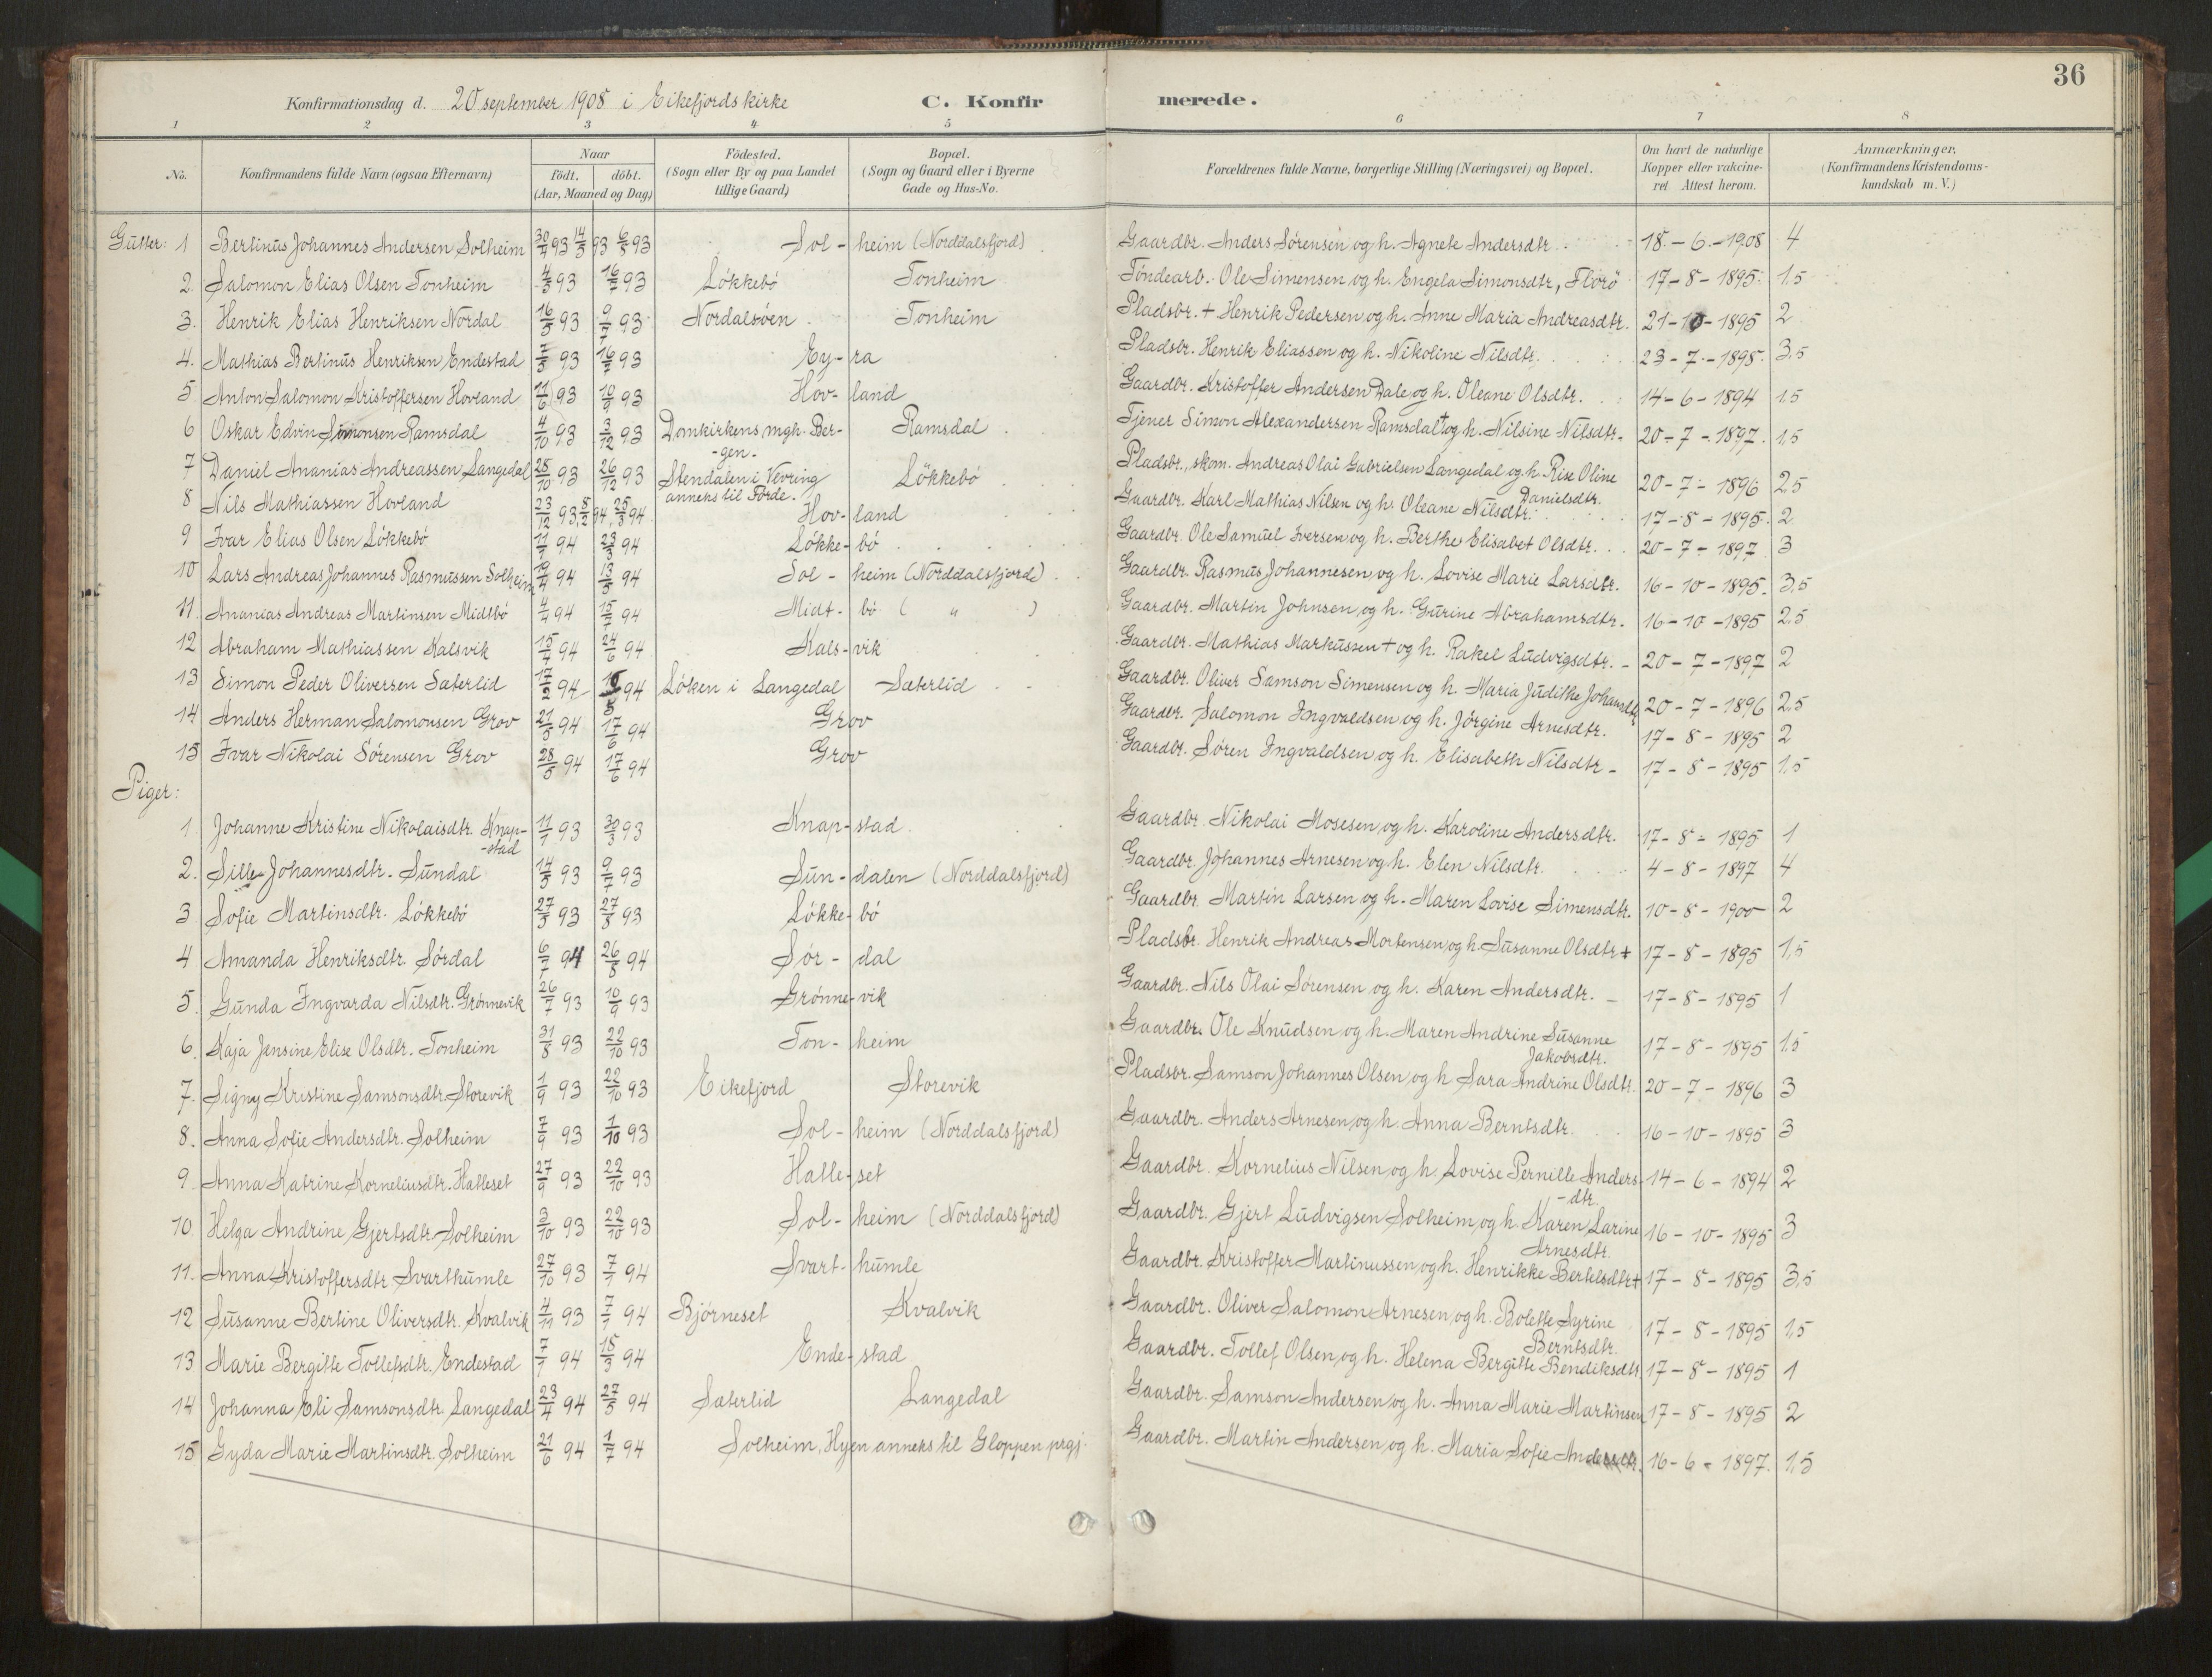 36
Konfirmationsdag d. 20 september 1908 i Eikefjords kirke C. Konfir merede.
1 2 3 4 5 6 7 8
No. Konfirmandens fulde Navn (ogsaa Efternavn) Naar født. døbt. (Aar, Maaned og Dag) Födested. (Sogn eller By og paa Landet tillige Gaard) Bopæl. (Sogn og Gaard eller i Byerne Gade og Hus-No. Forældrenes fulde Navne, borgerlige Stilling (Næringsvei) og Bopæl. Om havt de naturlige Kopper eller vakcineret Attest herom. Anmærkninger. (Konfirmandens Kristendoms-kundskab m. V.)
Gutter: 1 Bertinus Johannes Andersen Solheim 30/4 93 14/5 93 6/8 93 Sol-heim (Norddalsfjord) Gaardbr. Anders Sørensen og h. Agnete Andersdtr. 18-6-1908 4
2. Salomon Elias Olsen Tonheim 4/5 93 16/7 93 Løkkebö Tonheim Töndearb. Ole Simensen og h. Engela Simonsdtr, Florö 17-8-1895 1,5
3. Henrik Elias Henriksen Nordal 16/5 93 9/7 93 Nordalsöen Tonheim Pladsbr. + Henrik Pedersen og h. Anne Maria Andreasdtr. 21-10-1895 2
4. Mathias Bertinus Henriksen Endestad 7/5 93 16/7 93 Ey-ra Pladsbr. Henrik Eliassen og h. Nikoline Nilsdtr. 23-7-1898 3,5
5 Anton Salomon Kristoffersen Hovland 11/6 93 10/9 93 Hov-land Gaardbr. Kristoffer Andersen Dale og h. Oleane Olsdtr. 14-6-1894 1,5
6 Oskar Edvin Simonsen Ramsdal 4/10 93 3/12 93 Domkirkens, mgh. Ber-gen. Ramsdal Tjener Simon Alexandersen Ramsdal + og h. Nilsine Nilsdtr. 20-7-1897 1,5
7 Daniel Ananias Andreassen Langedal 28/10 93 26/12 93 Stendalen i Vevring anneks til Förde. Lökkebö Pladsbr., skom. Andreas Olai Gabrielsen Langedal og h. Rise Oline Danielsdtr. 20-7-1896 2,5
8 Nils Mathiassen Hovland 23/12 93, 5/2 94, 25/3 94 Hov-land Gaardbr. Karl Mathias Nilsen og h. Oleane Nilsdtr. 17-8-1895 2
9 Ivar Elias Olsen Lökkebö 11/1 94 23/3 94 Lökke-bö Gaardbr. Ole Samuel Iversen og h. Berthe Elisabet Olsdtr. 20-7-1897 3
10 Lars Andreas Johannes Rasmussen Solheim 19/4 94 13/5 94 Sol-heim (Norddalsfjord) Gaardbr. Rasmus Johannesen og h. Lovise Marie Larsdtr. 16-10-1895 3,5
11. Ananias Andreas Martinsen Midtbö 4/4 94 15/7 94 Midt-bö ( " ) Gaardbr. Martin Johnsen og h. Gurine Abrahamsdtr. 16-10-1895 2,5
12 Abraham Mathiassen Kalsvik 15/4 94 24/6 94 Kals-vik Gaardbr. Mathias Markussen + og h. Rakel Ludvigsdtr. 20-7-1897 2
13 Simon Peder Oliversen Sæterlid 17/2 94 94 Löken i Langedal Sæterlid Gaardbr. Oliver Samson Simensen og h. Maria Judithe Johansdtr 20-7-1896 2,5
14 Anders Herman Salomonsen Grov 21/5 94 17/6 94 Grov Gaardbr. Salomon Ingvaldsen og h. Jörgine Arnesdtr. 17-8-1895 2
15 Ivar Nikolai Sörensen Grov 28/5 94 17/6 94 Grov Gaardbr. Sören Ingvaldsen og h. Elisabeth Nilsdtr. 17-8-1895 1,5
Piger:
1. Johanne Kristine Nikolaisdtr. Knap-stad 11/1 93 30/3 93 Knap-stad Gaardbr. Nikolai Mosesen og h. Karoline Andersdtr. 17-8-1895 1
2. Sille Johannesdtr. Sundal 14/5 93 9/7 93 Sun-dalen (Norddalsfjord) Gaardbr. Johannes Arnesen og h. Elen Nilsdtr. 4-8-1897 4
3 Sofie Martinsdtr. Lökkebö 27/5 93 27/8 93 Lökke-bö Gaardbr. Martin Larsen og h. Maren Lovise Simensdtr. 10-8-1900 2
4 Amanda Henriksdtr. Sördal 6/7 94 26/8 94 Sör-dal Pladsbr. Henrik Andreas Mortensen og h. Susanne Olsdtr + 17-8-1895 1,5
5. Gunda Ingvarda Nilsdtr. Grönnevik 26/7 93 10/9 93 Grönne-vik Gaardbr. Nils Olai Sörensen og h. Karen Andersdtr. 17-8-1895 1
6. Kaja Jensine Elise Olsdtr. Tonheim 31/8 93 22/10 93 Ton-heim Gaardbr. Ole Knudsen og h. Maren Andrine Susanne Jakobsdtr. 17-8-1895 1,5
7. Signy Kristine Samsonsdtr. Storevik 1/9 93 22/10 93 Eikefjord Storevik Pladsbr. Samson Johannes Olsen og h Sara Andrine Olsdtr. 20-7-1896 3
8. Anna Sofie Andersdtr. Solheim 7/9 93 1/10 93 Sol-heim (Norddalsfjord) Gaardbr. Anders Arnesen og h. Anna Berntsdtr. 16-10-1895 3
9. Anna Katrine Korneliusdtr. Hatleset 27/9 93 22/10 93 Hatle-set Gaardbr. Kornelius Nilsen og h. Lovise Pernille Anders-dtr. 14-6-1894 2
10. Helga Andrine Gjertsdtr. Solheim 3/10 93 22/10 93 Sol-heim (Norddalsfjord) Gaardbr. Gjert Ludvigsen Solheim og h. Karen Larine Arnesdtr. 16-10-1895 3
11. Anna Kristoffersdtr Svarthumle 27/10 93 7/1 94 Svart-humle Gaardbr. Kristoffer Martinussen og h. Henrikke Bertelsdtr + 17-8-1895 3,5
12 Susanne Bertine Oliversdtr. Kvalvik 4/11 93 7/1 94 Björneset Kvalvik Gaardbr. Oliver Salomon Arnesen og h. Bolette Syrine Berntsdtr. 17-8-1895 1,5
13 Marie Bergitte Tollefsdtr. Endestad 7/1 94 18/3 94 Ende-stad Gaardbr. Tollef Olsen og h. Helena Bergitte Bendiksdtr 17-8-1895 1
14 Johanna Eli Samsonsdtr. Langedal 23/4 94 27/5 94 Sæterlid Langedal Gaardbr. Samson Andersen og h. Anna Marie Martinsen 17-8-1895 2
15 Gyda Marie Martinsdtr. Solheim 21/6 94 1/7 94 Solheim, Hyen anneks til Gloppen prgj. Gaardbr. Martin Andersen og h. Maria Sofie Andersdtr. 16-6-1897 1,5